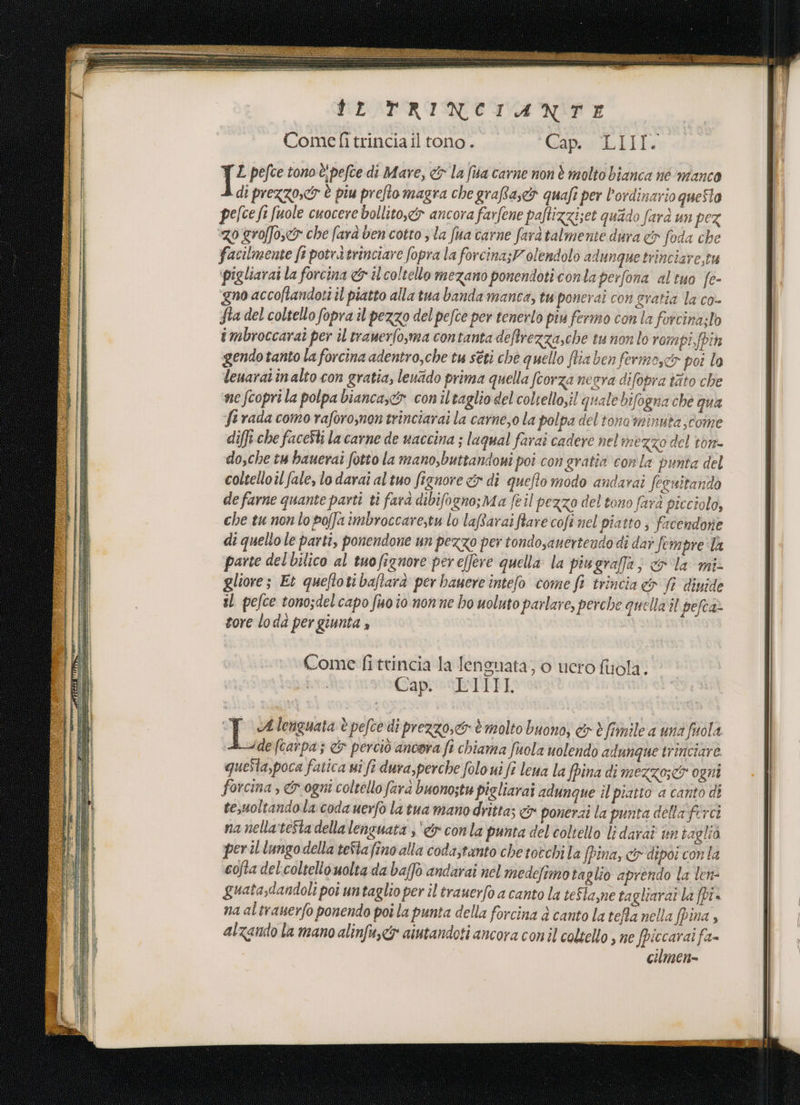 IL TRINCIANTE
Come si trincia il tono. Cap. LIII.
IL pesce tono è pesce di Mare, & la sua carne non è molto bianca ne manco
di prezzo, & è piu presto magra che grassa, & quasi per l'ordinario questo
pesce si suole cuocere bollito, & ancora farsene pastizzi; et quãdo sarà un pez
zo grosso, & che sarà ben cotto, la sua carne sarà talmente dura & soda che
facilmente si potrà trinciare sopra la forcina; Volendolo adunque trinciare, tu
pigliarai la forcina & il coltello mezano ponendoti con la persona al tuo se-
gno accostandoti il piatto alla tua banda manca, tu ponerai con gratia la co-
sta del coltello sopra il pezzo del pesce per tenerlo piu fermo con la forcina; lo
imbroccarai per il trauerso, ma con tanta destrezza, che tu non lo rompi, spin
gendo tanto la forcina adentro, che tu sẽti che quello stia ben fermo, & poi lo
leuarai in alto con gratia, leuãdo prima quella scorza negra disopra tãto che
ne scopri la polpa bianca, & con il taglio del coltello, il quale bisogna che qua
si rada como rasoro, non trinciarai la carne, o la polpa del tono minuta, come
dissi che facesti la carne de uaccina; laqual farai cadere nel mezzo del ton-
do, che tu hauerai sotto la mano, buttandoui poi con gratia con la punta del
coltello il sale, lo darai al tuo signore & di questo modo andarai seguitando
de farne quante parti ti farà dibisogno; Ma se il pezzo del tono sarà picciolo,
che tu non lo possa imbroccare, tu lo lassarai stare cosi nel piatto, facendone
di quello le parti, ponendone un pezzo per tondo, auertendo di dar sempre la
parte del bilico al tuo signore per essere quella la piu grassa, & la mi-
gliore; Et questo ti bastarà per hauere inteso come si trincia & si diuide
il pesce tono; del capo suo io non ne ho uoluto parlare, perche quella il pesca-
tore lo dà per giunta,
Come si trincia la lenguata, o uero suola.
Cap. LIIII.
LA lenguata è pesce di prezzo, & è molto buono, & è simile a una suola
de scarpa; & perciò ancora si chiama suola uolendo adunque trinciare
questa, poca fatica ui si dura, perche solo ui si leua la spina di mezzo; & ogni
forcina, & ogni coltello sarà buono; tu pigliarai adunque il piatto a canto di
te, uoltando la coda uerso la tua mano dritta; & ponerai la punta della forci
na nella testa della lenguata, & con la punta del coltello li darai un taglio
per il lungo della testa fino alla coda, tanto che tocchi la spina, & dipoi con la
costa del coltello uolta da basso andarai nel medesimo taglio aprendo la len-
guata, dandoli poi un taglio per il trauerso a canto la testa, ne tagliarai la spi-
na al trauerso ponendo poi la punta della forcina à canto la testa nella spina,
alzando la mano alinsu, & aiutandoti ancora con il coltello, ne spiccarai fa-
cilmen-